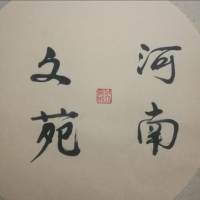 河南
文苑